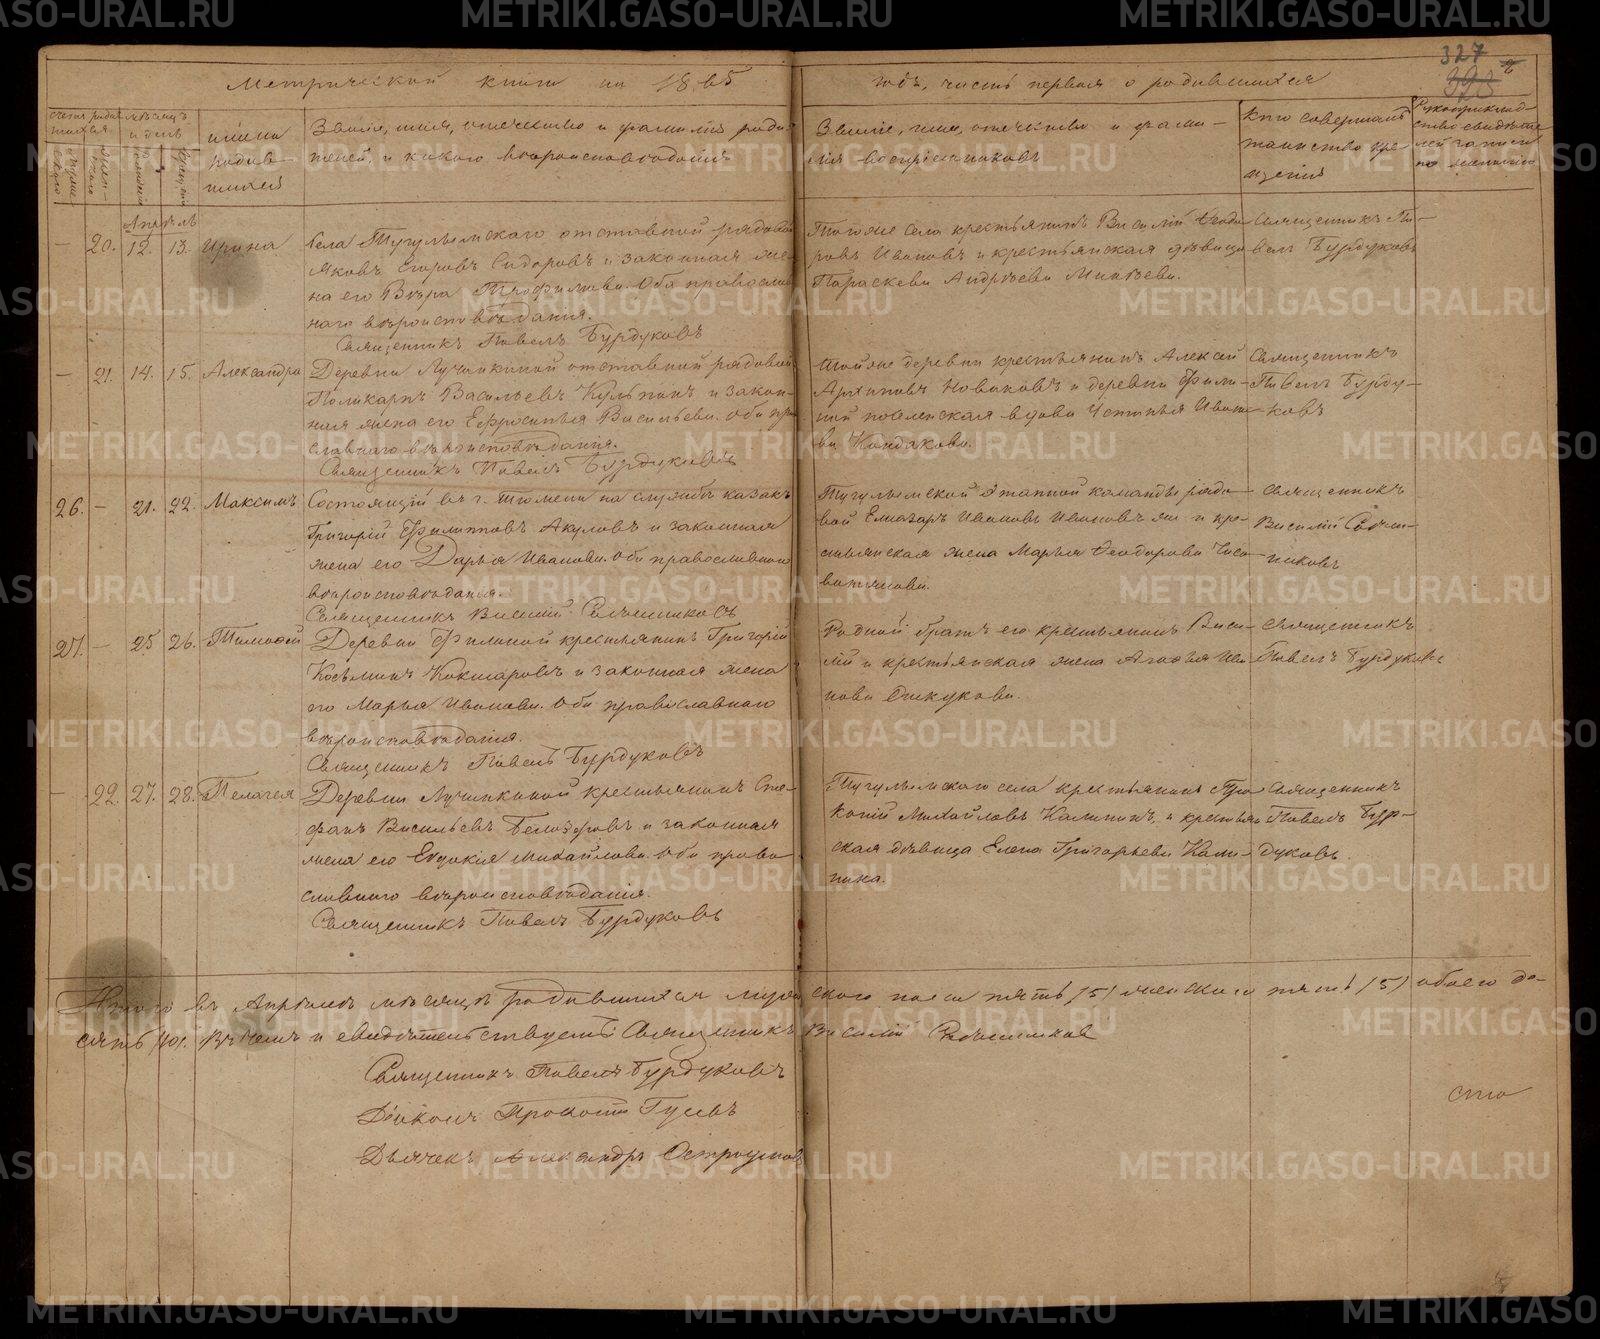 327
Метрической книги на 1865
годъ, часть первая о родившихся
Мѣсяцъ
и день
имена
родив-
шихся
Званіе, имя, отечество и фамилія роди-
телей, и какого вѣроисповѣданія
Званіе, имя, отечество и фами-
лія воспріемниковъ
Кто совершалъ
таинство кре-
щенія
Рукоприклад-
ство свидѣте
лей записи
по желанію
Апрѣль
— 20. 12. 13. Ирина
Села Тугулымскаго отставной рядовой
Яковъ Егоровъ Сидоровъ и законная же-
на его Вѣра Трофимова. Оба православ
наго вѣроисповѣданія.
Священникъ Павелъ Бурдуковъ
Того же села крестьянинъ Василій Ѳеодо
ровъ Ивановъ и крестьянская дѣвица
Параскева Андрѣева Минѣева.
Священникъ Па-
велъ Бурдуковъ
— 21. 14. 15. Александра
Деревни Лучинкиной отставной рядовой
Поликарпъ Васильевъ Кульпинъ и закон-
ная жена его Ефросинья Васильева. Оба пра
славнаго вѣроисповѣданія.
Священникъ Павелъ Бурдуковъ
Той же деревни крестьянинъ Алексѣй
Архиповъ Новаковъ и деревни Фили-
ной поселенская вдова Устинья Ивано
ва Кондакова.
Священникъ
Павелъ Бурду-
ковъ
26. — 21. 22. Максимъ
Состоящій въ г. Тюмени на службѣ казакъ
Григорій Филипповъ Акуловъ и законная
жена его Дарья Иванова. Оба православнаго
вѣроисповѣданія.
Священникъ Василій Словцовъ
Тугулымской этапной команды рядо-
вой Елиазаръ Ивановъ Ивановъ же и кре-
стьянская жена Марья Ѳеодорова Чисо
вотянова.
Священникъ
Василій
никовъ
27. — 25 26. Тимофей
Деревни Филиной крестьянинъ Григорій
Косьминъ Кокшаровъ и законная жена
го Марья Иванова. Оба православнаго
вѣроисповѣданія.
Священникъ Павелъ Бурдуковъ
Родной братъ его крестьянинъ Васи-
лій и крестьянская жена Агафья Ива
нова
Священникъ
Павелъ Бурдуковъ
— 22. 27. 28. Пелагея
Деревни Лучинкиной крестьянинъ Сте-
фанъ Васильевъ Бѣлозеровъ и законная
жена его Евдокія Михайлова. Оба право
славнаго вѣроисповѣданія.
Священникъ Павелъ Бурдуковъ
Тугулымскаго села крестьянинъ Про
копій Михайловъ Калининъ, и крестьян
ская дѣвица Елена Григорьева Кали-
нина.
Священникъ
Павелъ Бур-
дуковъ.
Итого въ Апрѣлѣ мѣсяцѣ родившихся муже ского пола пять /5/ женскаго пять /5/ обоего де-
сять /10/. Въ чемъ и свидѣтельствуетъ: Священникъ Василій
Священникъ Павелъ Бурдуковъ
Діаконъ Прокопій Гусевъ
Дьячекъ Александръ Остроумовъ
сто
METRIKI.GASO-URAL.RU